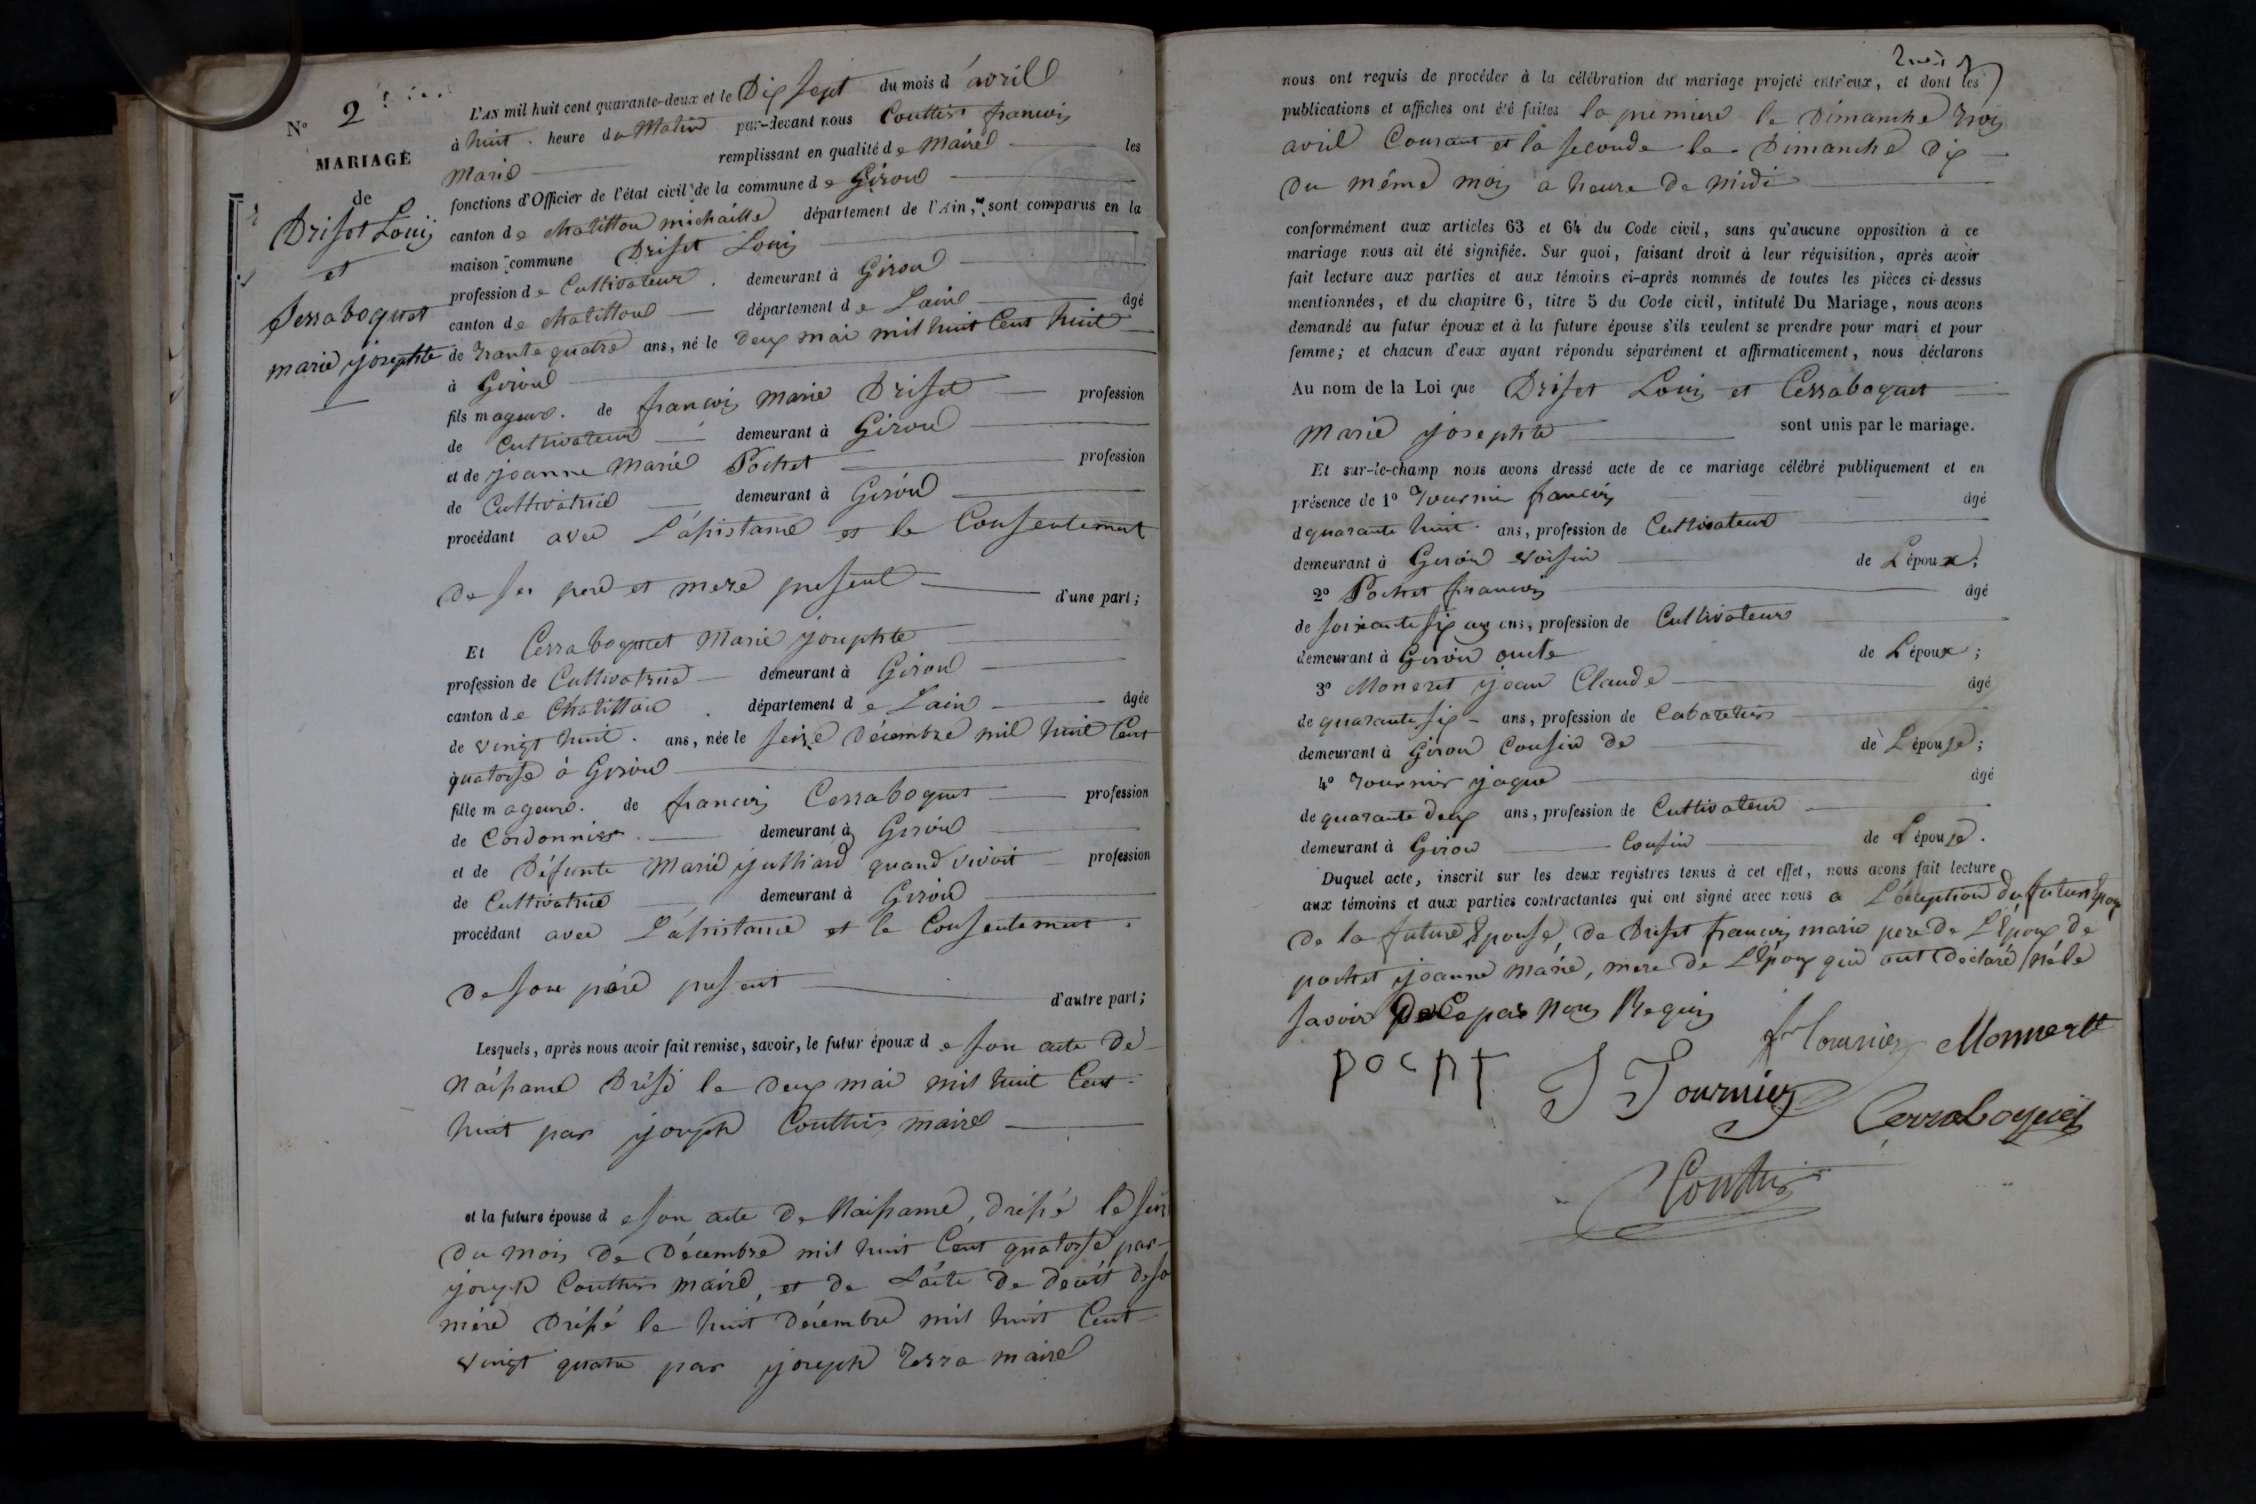 N° 2
MARIAGE
de
Driset Louis
et
Serraboquet
marie josephte
L'AN mil huit cent quarante-deux et le Dix sept du mois d'avril
à huit heure du Matin par-devant nous Couttier francois
Marie remplissant en qualité de Maire les
fonctions d'Officier de l'état civil de la commune de Giron
canton de chatillon michaille département de l'Ain, sont comparus en la
maison commune Driset Louis
profession de Cultivateur demeurant à Giron
canton de chatillon département de Lain âgé
de trante quatre ans, né le deux mai mil huit Cent huit
à Giron
fils mageur de francois Marie Driset profession
de Cultivateur demeurant à Giron
et de joanne Marie Pochet profession
de Cultivatrice demeurant à Giron
procédant avec L'assistance et le Consentement
de ses pere et mere present d'une part;
Et Cerraboquet Marie josephte
profession de Cultivatrice demeurant à Giron
canton de Chatillon département de Lain âgée
de vingt huit ans, née le seize Décembre mil huit Cent
quatorse à Giron
fille mageure de francois Cerraboquet profession
de Cordonnier demeurant à Giron
et de Défunte Marie julliard quand vivoit profession
de Cultivatrice demeurant à Giron
procédant avec L'assistance et le Consentement
de son père present d'autre part;
Lesquels, après nous avoir fait remise, savoir, le futur époux de son acte de
Naissance Dréssé le deux mai mil huit Cent
huit par joseph Couttier maire
et la future épouse de son acte de Naissance, dréssé le seize
du mois de Décembre mil huit Cent quatorse par
joseph Couttier maire, et de L'acte de decét de sa
mère dréssé le huit décembre mil huit Cent
vingt quatre par joseph Terra maire
nous ont requis de procéder à la célébration du mariage projeté entr'eux, et dont les
publications et affiches ont été faites la premiere le Dimanche trois
avril Courant et la seconde le Dimanche dix
du même mois a heure de midi
conformément aux articles 63 et 64 du Code civil, sans qu'aucune opposition à ce
mariage nous ait été signifiée. Sur quoi, faisant droit à leur réquisition, après avoir
fait lecture aux parties et aux témoins ci-après nommés de toutes les pièces ci-dessus
mentionnées, et du chapitre 6, titre 5 du Code civil, intitulé Du Mariage, nous avons
demandé au futur époux et à la future épouse s'ils veulent se prendre pour mari et pour
femme; et chacun d'eux ayant répondu séparément et affirmativement, nous déclarons
Au nom de la Loi que Driset Louis et Cerraboquet
Marie josephte sont unis par le mariage.
Et sur-le-champ nous avons dressé acte de ce mariage célébré publiquement et en
présence de 1° Tournier francois âgé
d quarante huit ans, profession de Cultivateur
demeurant à Giron voisin de L'époux;
2° Pochet francois âgé
de soixante six ans, profession de Cultivateur
demeurant à Giron oncle de L'époux;
3° Moneret jean Claude âgé
de quarante six ans, profession de Cabaretier
demeurant à Giron Cousin de de L'épouse;
4° Tournier jaque âgé
de quarante deux ans, profession de Cultivateur
demeurant à Giron Cousin de L'épouse.
Duquel acte, inscrit sur les deux registres tenus à cet effet, nous avons fait lecture
aux témoins et aux parties contractantes qui ont signé avec nous a L'éxeption du futur Epoux
de la future Epouse, de Driset francois marie pere de L'Epoux de
pochet joanne Marie, mere de L'Epoux qui ont déclaré ne le
savoir de ce par Nous Requis
fr Tournier Monnerett
pocht J Tournier
Cerraboquet
Couttier